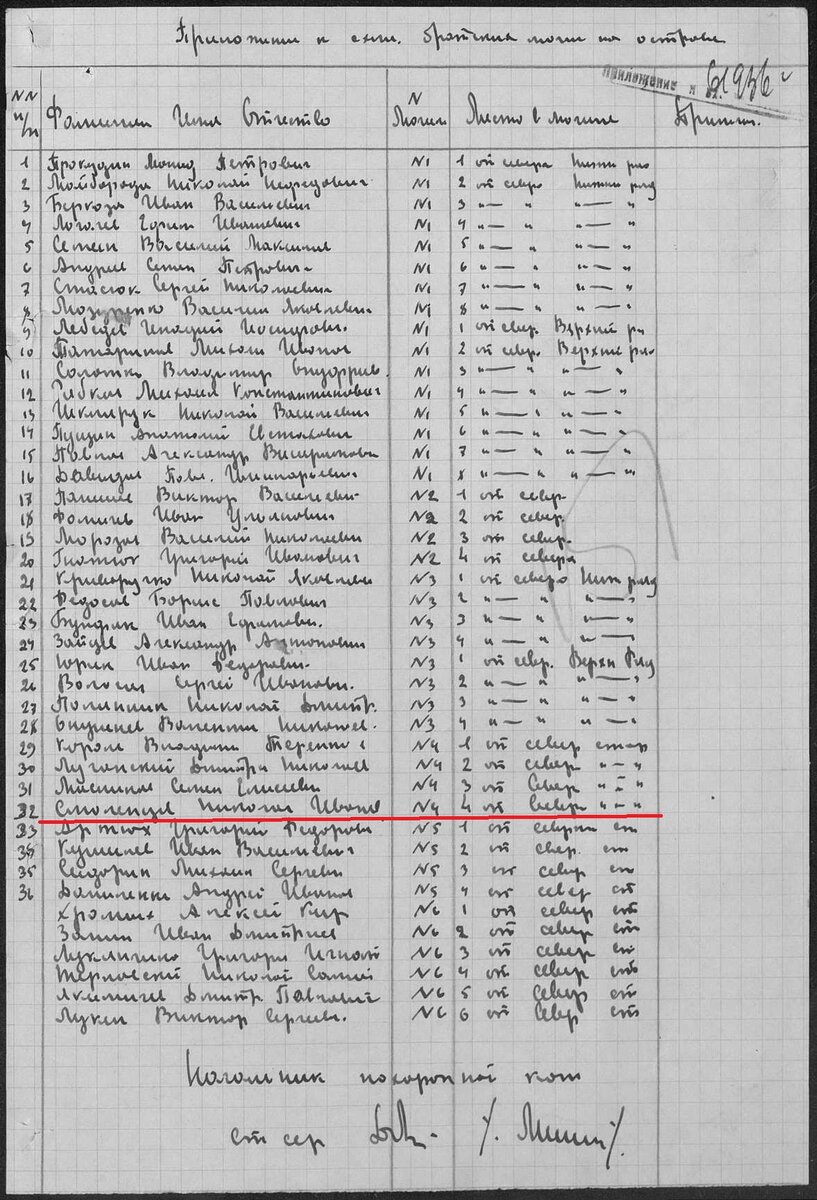 Приложении к схем. братских могил на острове
Приложение к вх. 61936 г
NN п/п Фамилии Имя Отчество N Могил Место в могиле Примеч.
1 Прокудин Петрович N1 1 от севера Нижни ряд
2 Майборода Николай N1 2 от севера Нижнии ряд
3 Беркоза Иван Василиевич N1 3 "—" "—"
4 Логачев Горин Иванович N1 4 "—" "—"
5 Семен Василий Максимов N1 5 "—" "—"
6 Андрие Семен Петрович N1 6 "—" "—"
7 Стасюк Сергей Николаевич N1 7 "—" "—"
8 Мозуренко Василии Яковлевич N1 8 "—" "—"
9 Лебедев Генадий N1 1 от север. Верхний ря
10 Татаринов Михаил Иванов N1 2 от север. Верхние ряд
11 Владимир N1 3 "—" "—"
12 Рябков Михаил Константинович N1 4 "—" "—"
13 Шкмирук Николай Василевич N1 5 "—" "—"
14 Пущин Анатолий Евстахович N1 6 "—" "—"
15 Павлов Александр N1 7 "—" "—"
16 Давидов Павл. N1 8 "—" "—"
17 Виктор Василевич N2 1 от север
18 Фомичев Иван N2 2 от север.
19 Морозов Василий Николаевич N2 3 от север.
20 Гнатюк Григорий Иванович N2 4 от севера
21 Криворучко Николай Яковлеви N3 1 от севера Нижн ряд
22 Федосов Борис Павлович N3 2 "—" "—"
23 Бундюк Иван Ефимович. N3 3 "—" "—"
24 Зайцев Александр Антонович N3 4 "—" "—"
25 Юрик Иван Федорович. N3 1 от север. Верхн Ряд
26 Волосов Сергей Иванови. N3 2 "—" "—"
27 Николай Дмитр. N3 3 "—" "—"
28 Валенти Николаев. N3 4 "—" "—"
29 Король Владими Теренть N4 1 от север стор
30 Луганский Дмитри Николаев N4 2 от север "—"
31 Семен Елисееви N4 3 от Север "—"
32 Смоленцев Николай Иванов N4 4 от Север "—"
33 Артюх Григорий Федорови N5 1 от северн ст
35 Иван Василевич N5 2 от север. ст
35 Сидорин Михаил Сергееви N5 3 от север ст
36 Даниленко Андрей Иванов N5 4 от север ст
Хромих Алексей Кир N6 1 от север ст
Занин Иван Дмитриев N6 2 от север ст
Лукличико Григори Игнат N6 3 от север ст
Терловский Николай N6 4 от север ст
Якимичев Дмитр Павлович N6 5 от север ст
Лукин Виктор Сергеев. N6 6 от Север ст
Начальник похоронной ком
ст сер /. /.